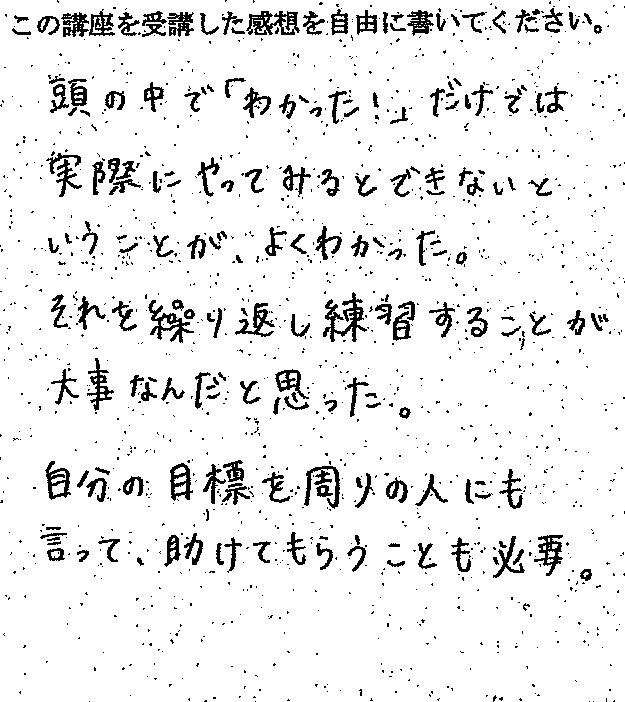 この講座を受講した感想を自由に書いてください。
頭の中で「わかった！」だけでは
実際にやってみるとできないと
いうことが、よくわかった。
それを繰り返し練習することが
大事なんだと思った。
自分の目標を周りの人にも
言って、助けてもらうことも必要。